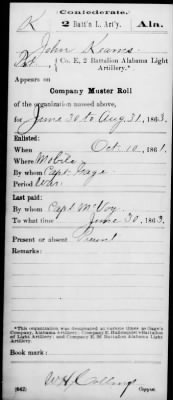 Confederate.
K 2 Batt'n L. Art'y. Ala.
John Kearns
Pvt., Co. E, 2 Battalion Alabama Light
Artillery.*
Appears on
Company Muster Roll
of the organization named above,
for June 30 to Aug 31, 1863.
Enlisted:
When Oct 10, 1861.
Where Mobile
By whom Capt. Gage
Period War
Last paid:
By whom Capt McVoy
To what time June 30, 1863.
Present or absent Present
Remarks:
*This organization was designated at various times as Gage's
Company, Alabama Artillery; Company E,
of Light Artillery; and Company E, 2d Battalion Alabama Light
Artillery.
Book mark:
(642) Copyist.